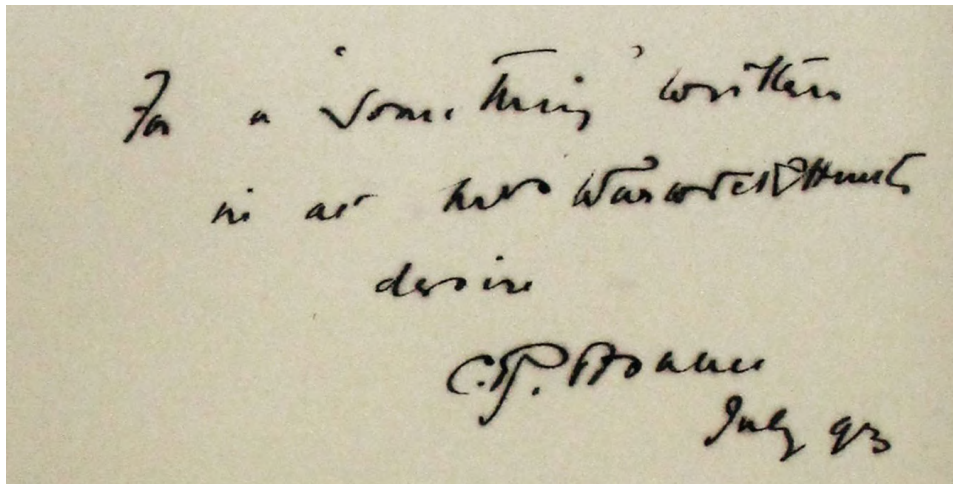 For a 'something' written
in at Mrs Warwick Hunt's
desire
July 93